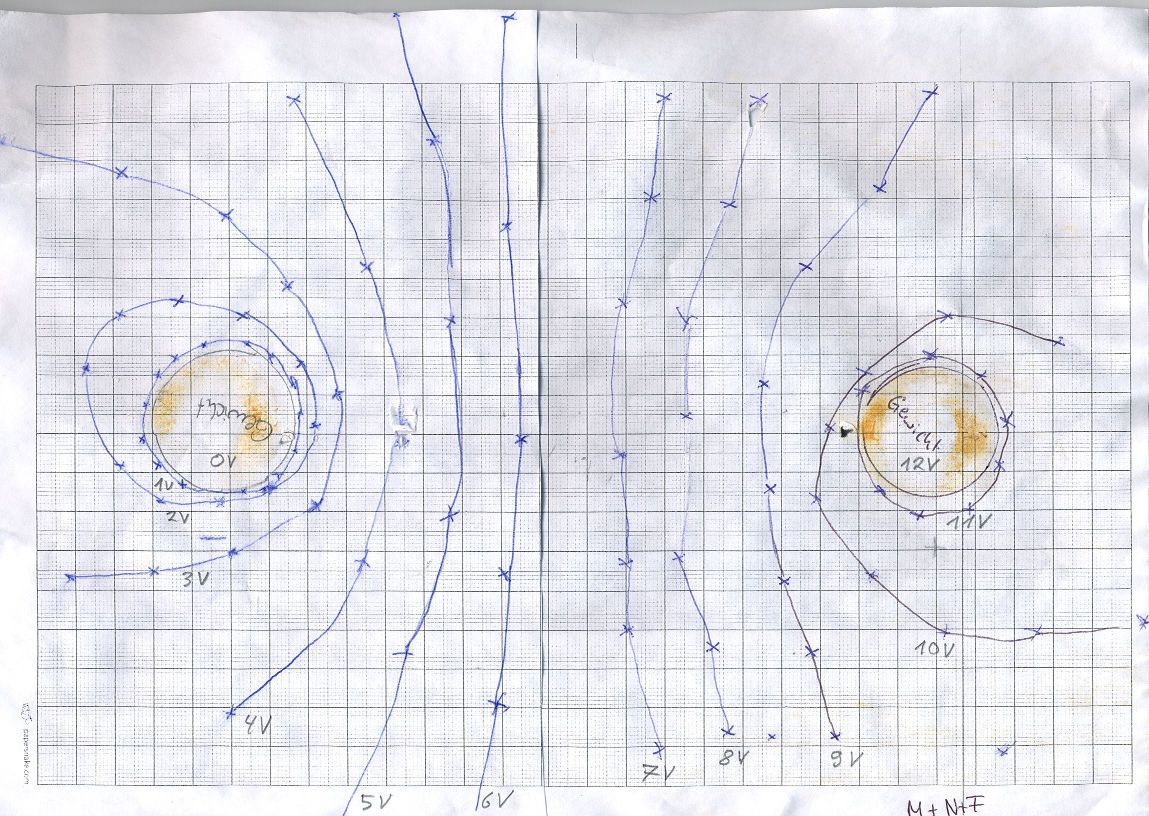 Gewicht
0V
1V
2V
3V
4V
5V
6V
7V
8V
9V
Gewicht
12V
11V
10V
M+N+F
papersnake.com